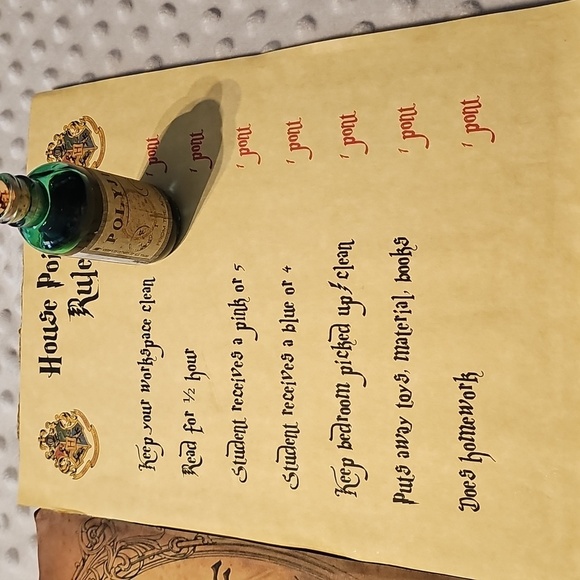 House Poi
Rule
Keep your workspace clean 1 pont
Read for 1/2 hour 1 pont
Student receives a pink or 5 1 pont
Student receives a blue or 4 1 pont
Keep bedroom picked up & clean 1 pont
Puts away toys, material, books 1 pont
Does homework 1 pont
POLYJ